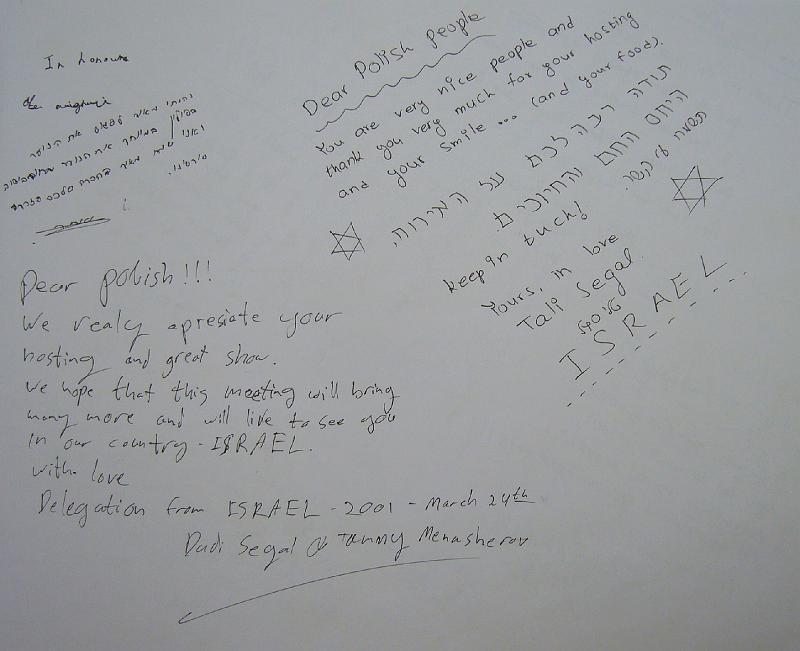 In honour
נהנתי מאד לפגוש את הנוער
בפולין במיוחד את הנוער
ואני מאד
Dear Polish people
You are very nice people and
thank you very much for your hosting
and your smile ... (and your food).
תודה רבה לכם על האירוח,
היחס החם והחיוכים.
נשמח על קשר.
keep in tuch!
Yours, in love
Tali Segal.
טלי סגל
ISRAEL
Dear polish!!!
We realy apresiate your
hosting and great show.
We hope that this meeting will bring
many more and will live to see you
in our country - ISRAEL.
with love
Delegation from ISRAEL - 2001 - March 24th
Dudi Segal & Tammy Menasherov